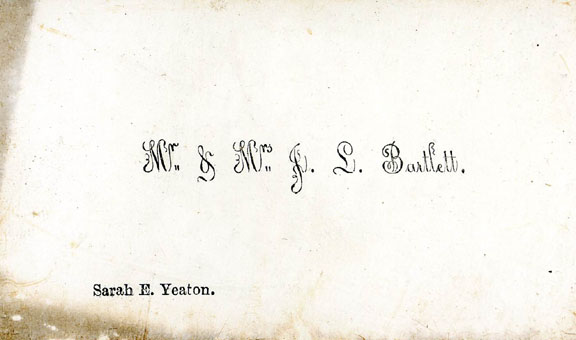 Mr. & Mrs. J. L. Bartlett.
Sarah E. Yeaton.